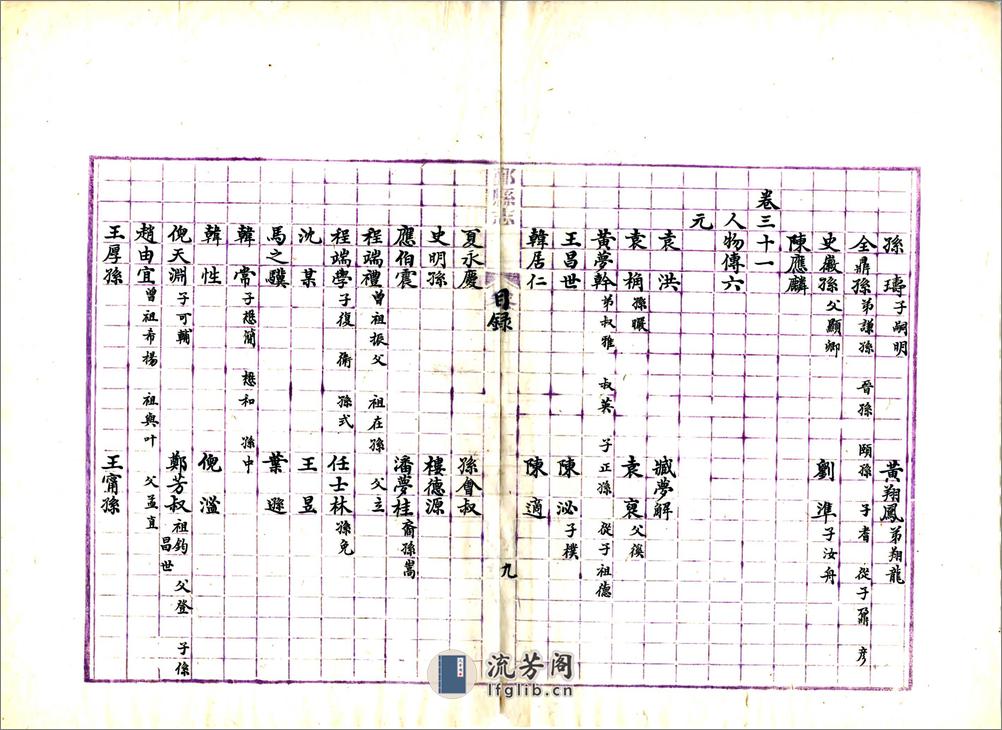 孫璹子嗣明 黃翔鳳弟翔龍
全鼎孫弟謙孫 晉孫 頤孫 子耆 從子鼐 彦
史徽孫父顯卿 劉準子汝舟
陳應麟
卷三十一
人物傳六
元
袁洪 臧夢解
袁桷孫㬇 袁裒父俁
黃夢幹弟叔雅 叔英 子正孫 從子祖德
王昌世 陳泌子樸
韓居仁 陳適
鄞縣志
目錄
九
夏永慶 孫會叔
史明孫 樓德源
應伯震 潘夢桂裔孫嵩
程端禮曾祖振父 祖在孫 父立
程端學子復 衞 孫式 任士林孫免
沈某 王昱
馬之驥 葉遜
韓常子懋簡 懋和 孫中
韓性 倪濫
倪天淵子可輔 鄭芳叔祖鈞 父登 子係
昌世
趙由宜曾祖希楊 祖與叶 父孟直
王厚孫 王甯孫
流芳阁
lfglib.cn